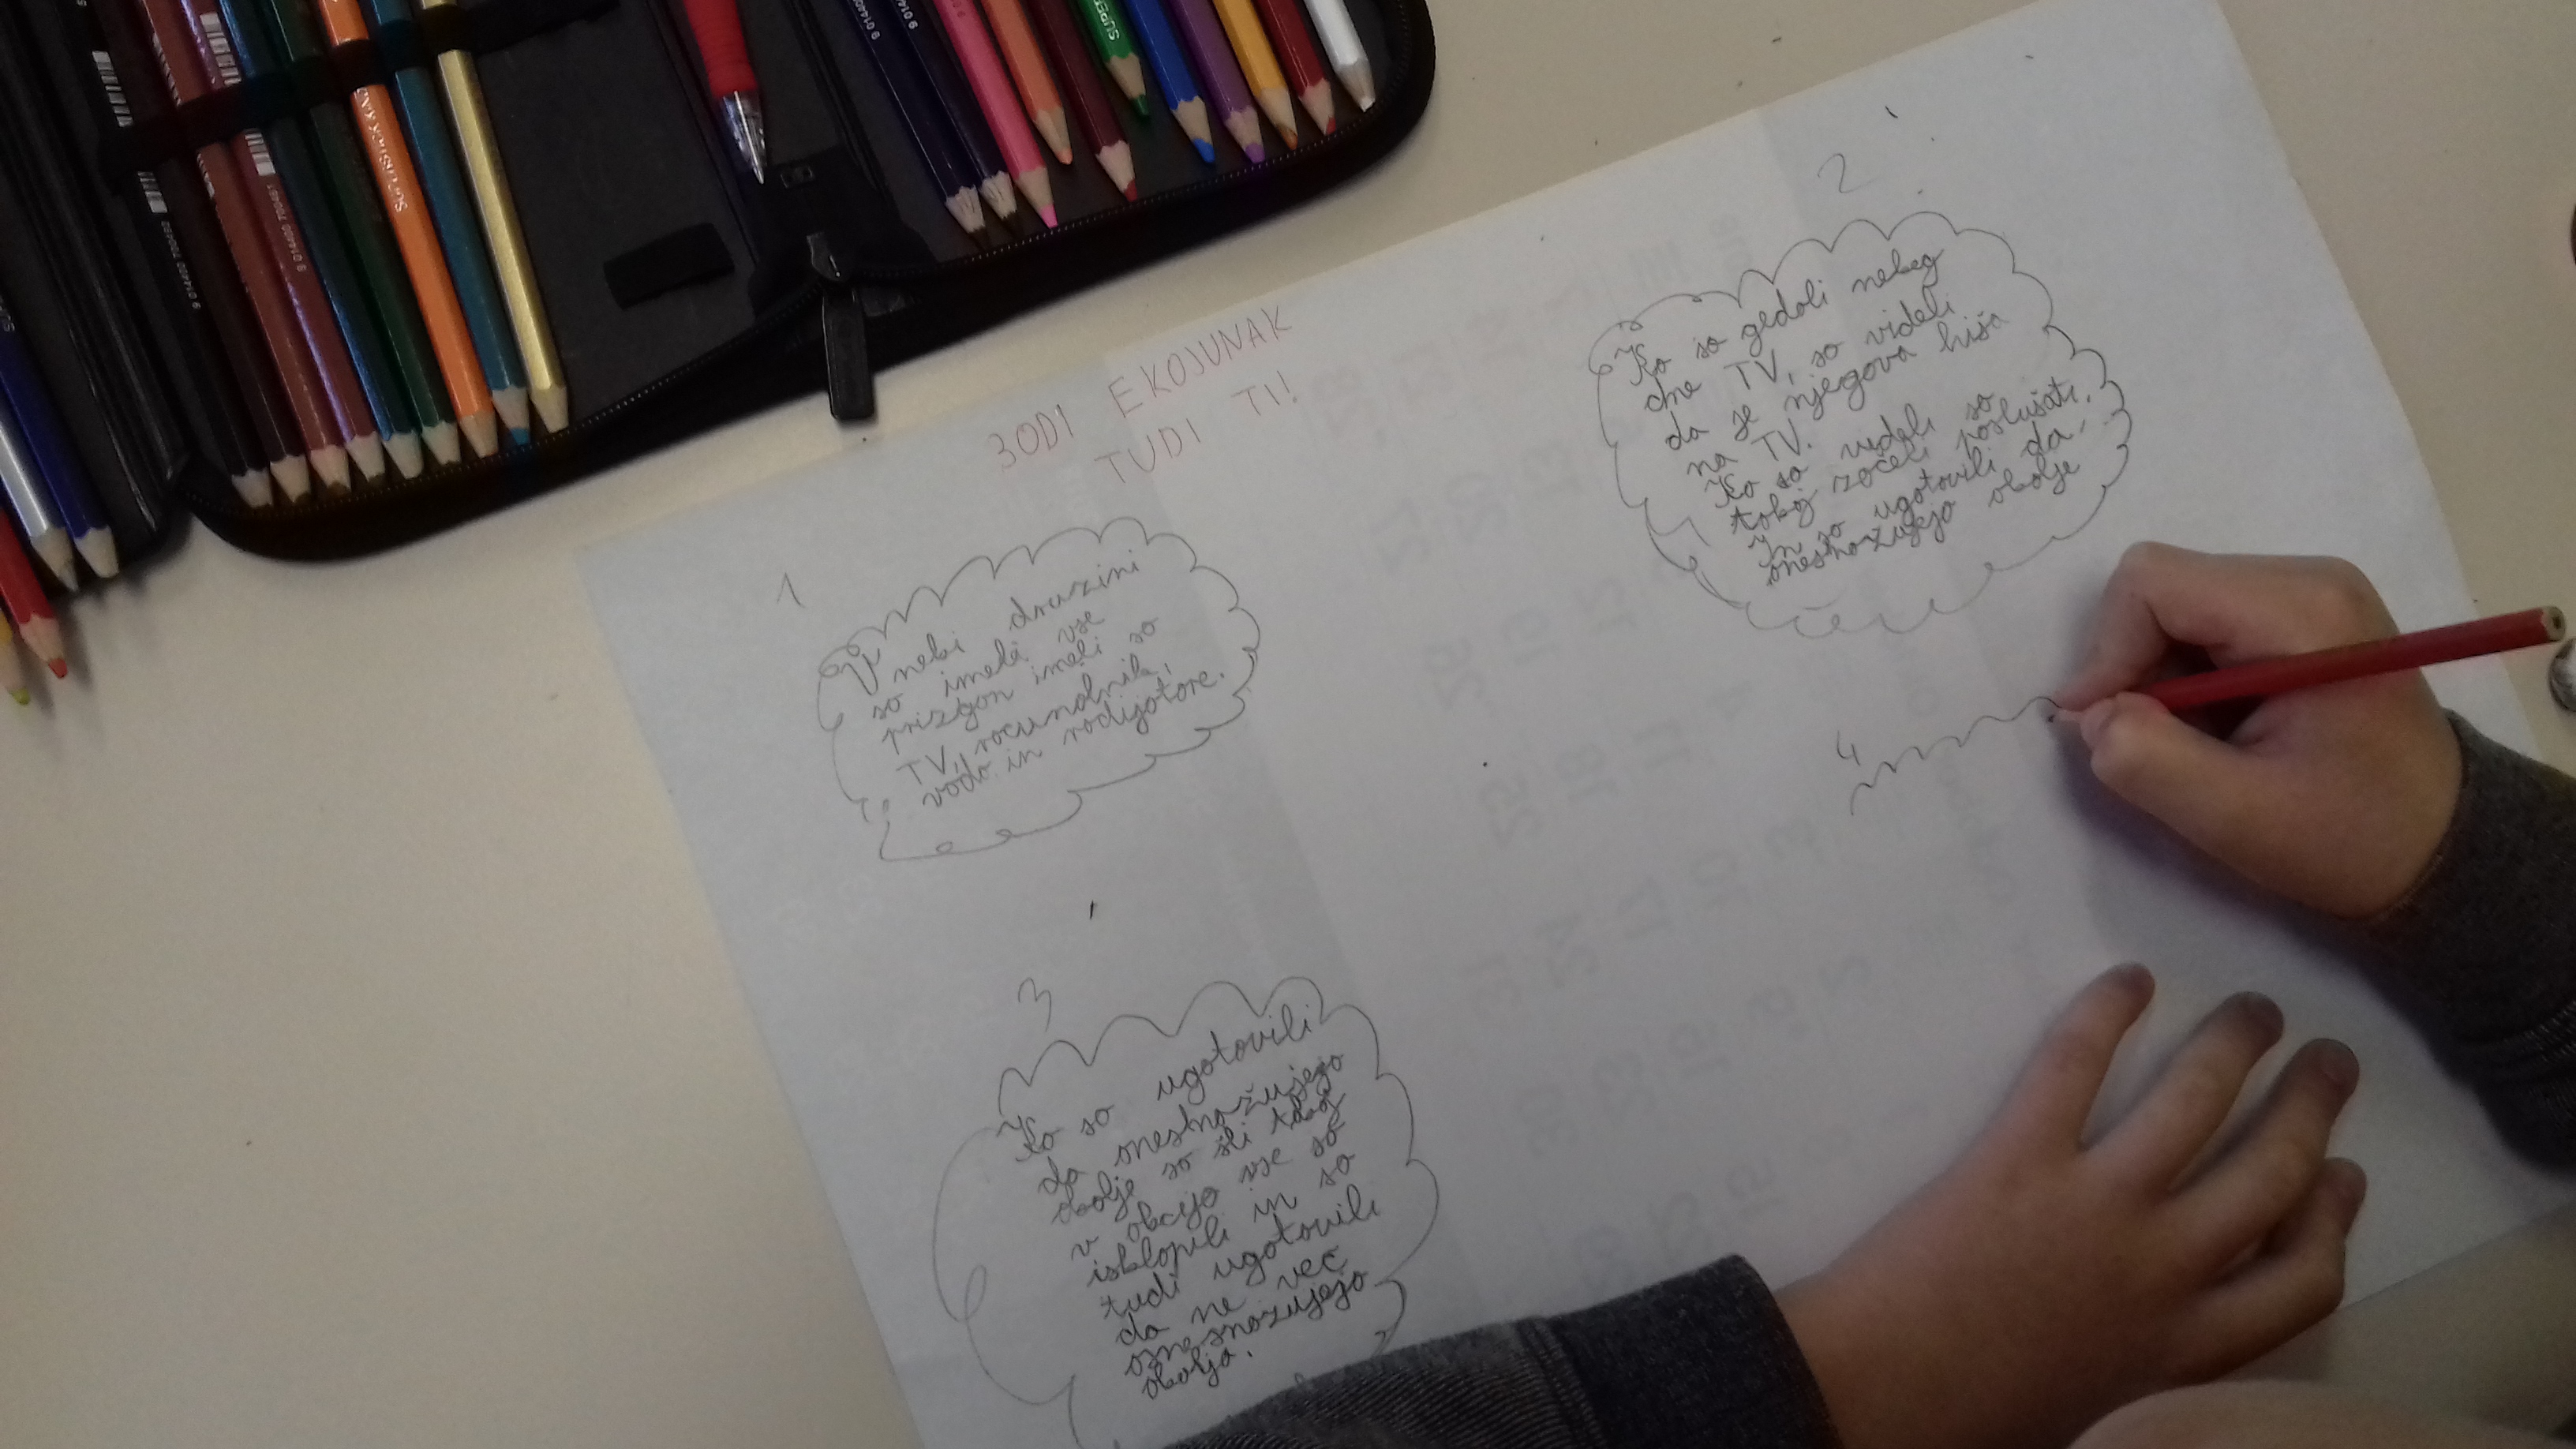 3ODI EKOJUNAK
TUDI TI!
1
V neki druzini
so imeli vse
prizgon imeli so
TV, racunalnik,
vodo in rodijatore.
2
Ko so gledali nekeg
dne TV, so videli
da je njegova hiša
na TV.
Ko so videli so
tokoj začeli poslušati.
In so ugotovili da,
onesnažujejo okolje
3
Ko so ugotovili
da onesnažujejo
okolje so šli tokoj
v akcijo vse so
isklopili in so
tudi ugotovili
da ne več
onesnazujejo
okolja.
4
SUPER
SUPERSTICK
9 014400 700461